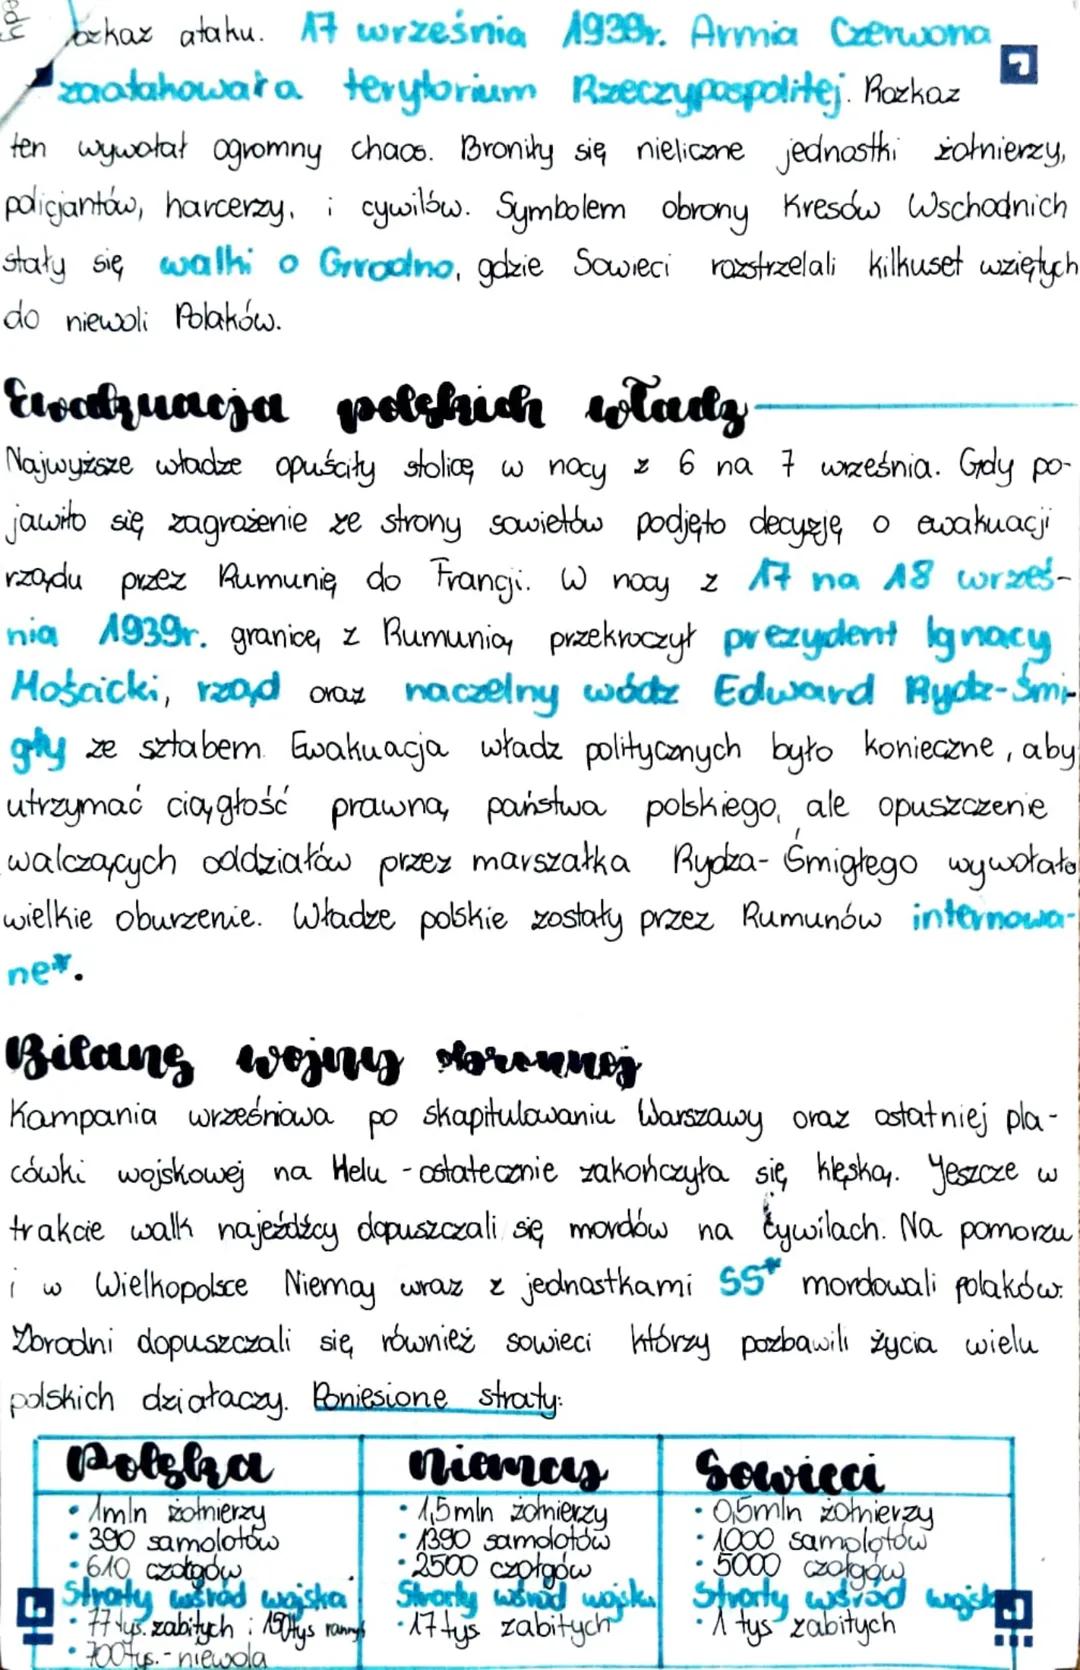 rozkaz ataku. 17 września 1939r. Armia Czerwona
zaatakowała terytorium Rzeczypospolitej. Rozkaz
ten wywołał ogromny chaos. Broniły się nieliczne jednostki żołnierzy,
policjantów, harcerzy, i cywilów. Symbolem obrony Kresów Wschodnich
stały się walki o Grodno, gdzie Sowieci rozstrzelali kilkuset wziętych
do niewoli Polaków.
Ewakuacja polskich władz
Najwyższe władze opuściły stolicę w nocy z 6 na 7 września. Gdy po-
jawiło się zagrożenie ze strony sowietów podjęto decyzję o ewakuacji
rządu przez Rumunię do Francji. W nocy z 17 na 18 wrześ-
nia 1939r. granicę z Rumunią przekroczył prezydent Ignacy
Mościcki, rząd oraz naczelny wódz Edward Rydz-Śmi-
gły ze sztabem. Ewakuacja władz politycznych było konieczne, aby
utrzymać ciągłość prawną państwa polskiego, ale opuszczenie
walczących oddziałów przez marszałka Rydza-Śmigłego wywołało
wielkie oburzenie. Władze polskie zostały przez Rumunów internowa-
ne*.
Bilans wojny obronnej
Kampania wrześniowa po skapitulowaniu Warszawy oraz ostatniej pla-
cówki wojskowej na Helu - ostatecznie zakończyła się klęską. Jeszcze w
trakcie walk najeźdźcy dopuszczali się mordów na cywilach. Na pomorzu
i w Wielkopolsce Niemcy wraz z jednostkami SS* mordowali polaków.
Zbrodni dopuszczali się również sowieci którzy pozbawili życia wielu
polskich działaczy. Poniesione straty:
Polska Niemcy Sowieci
• 1mln żołnierzy • 1,5mln żołnierzy • 0,5mln żołnierzy
• 390 samolotów • 1390 samolotów • 1000 samolotów
• 610 czołgów • 2500 czołgów • 5000 czołgów
Straty wśród wojska Straty wśród wojska Straty wśród wojska
• 77 tys. zabitych i tys rannych • 17 tys zabitych • 1 tys zabitych
• 700tys. - niewola